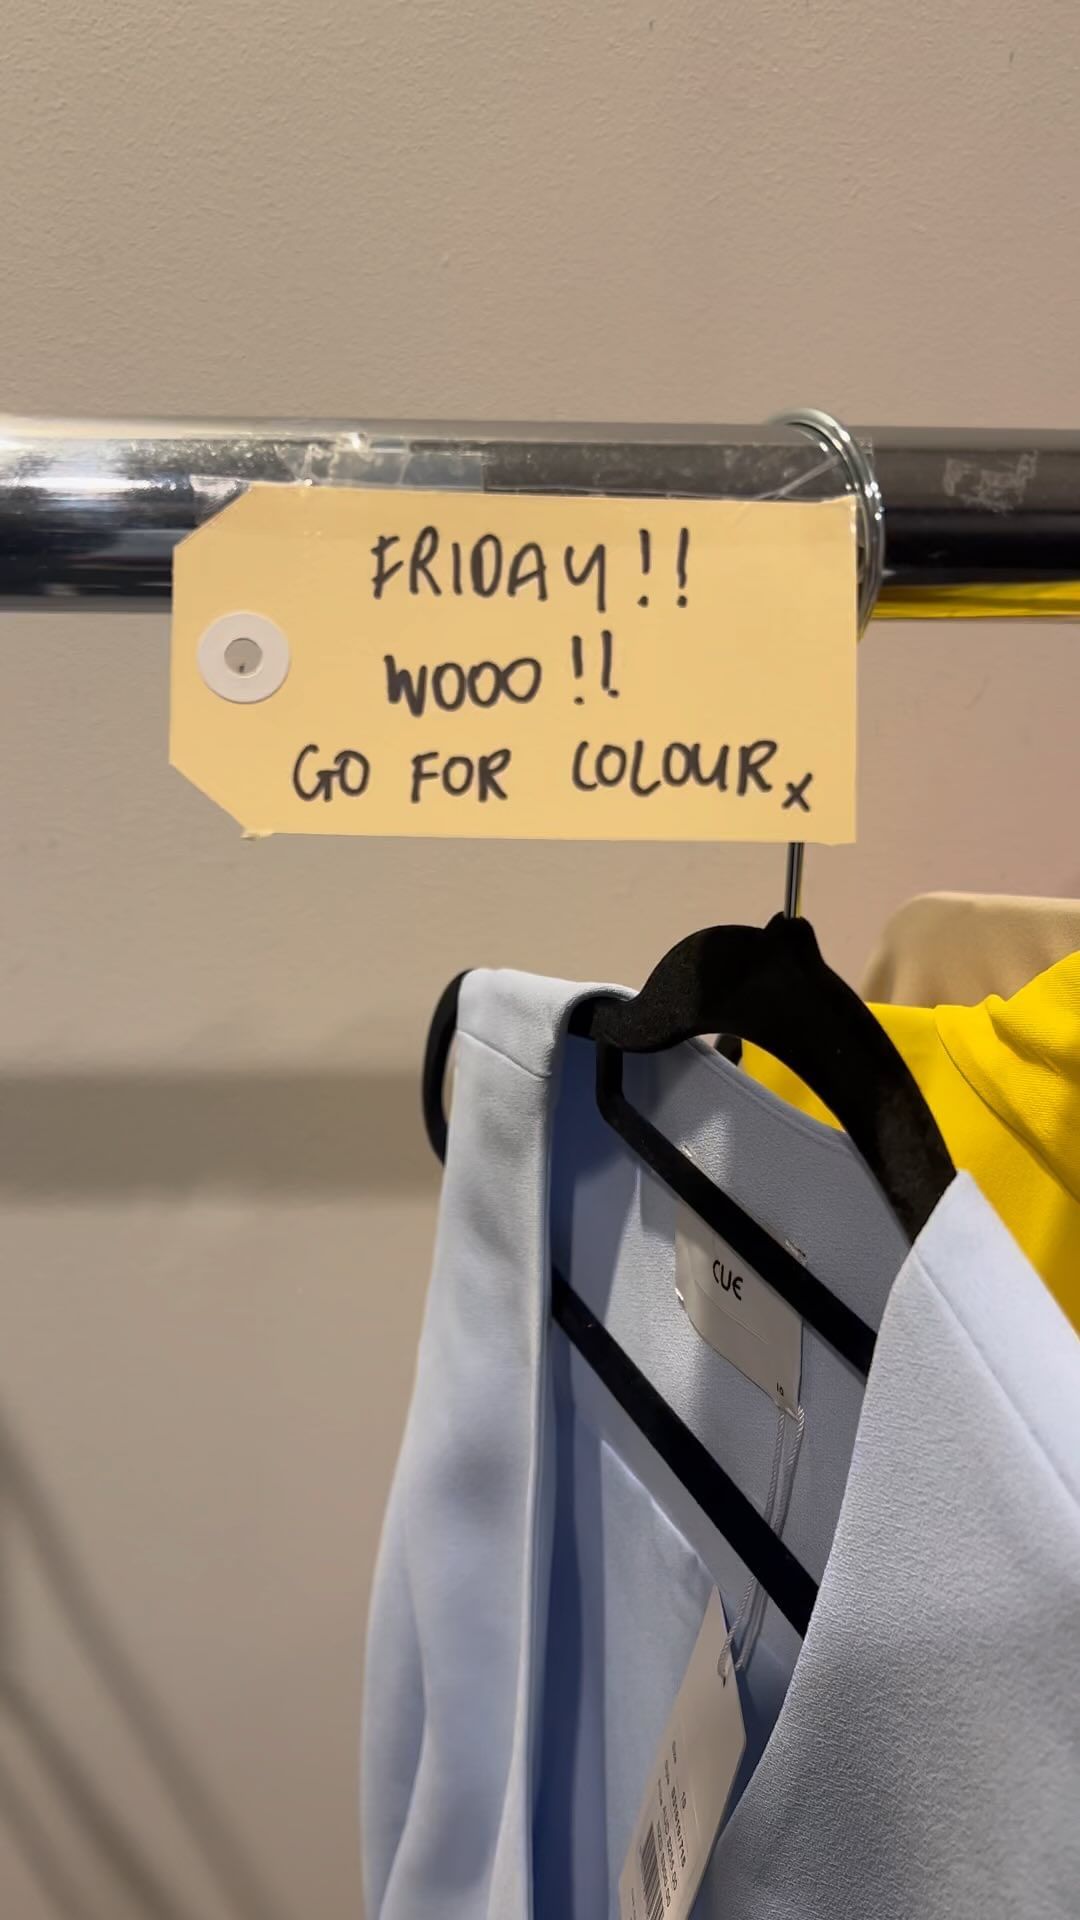 FRIDAY!!
WOOO!!
GO FOR COLOUR x
CUE
10